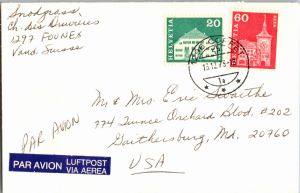 Snodgrass,
Ch. des Druvières
1297 FOUNEX
Vaud. Suisse
HELVETIA 20
HELVETIA 60
PAR AVION
Mr & Mrs. Eric Swaithe
774 Quince Orchard Blvd. #202
Gaithersburg, Md. 20760
USA
PAR AVION LUFTPOST
VIA AEREA